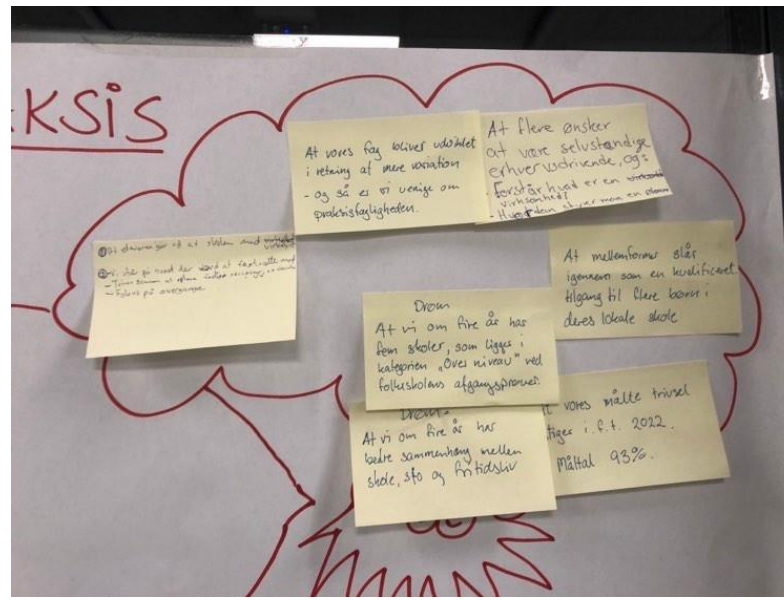 KSIS
At vores fag bliver udviklet
i retning af mere variation
- og så er vi uenige om
praksisfagligheden.
At flere ønsker
at være selvstændige
erhvervsdrivende, og:
- Forstår hvad er en
virksomhed?
- Hvordan styrer man en
① Vi at skolen med
② Vi på at fortsætte med
- Fokus på overgange
At mellemformer slår
igennem som en kvalificeret
tilgang til flere børn i
deres lokale skole
Drøm
At vi om fire år har
fem skoler, som ligger i
kategorien "Over niveau" ved
folkeskolens afgangsprøver.
Drøm:
At vi om fire år har
bedre sammenhæng mellem
skole, sfo og fritidsliv
vores målte trivsel
stiger i.f.t. 2022.
Måltal 93%.